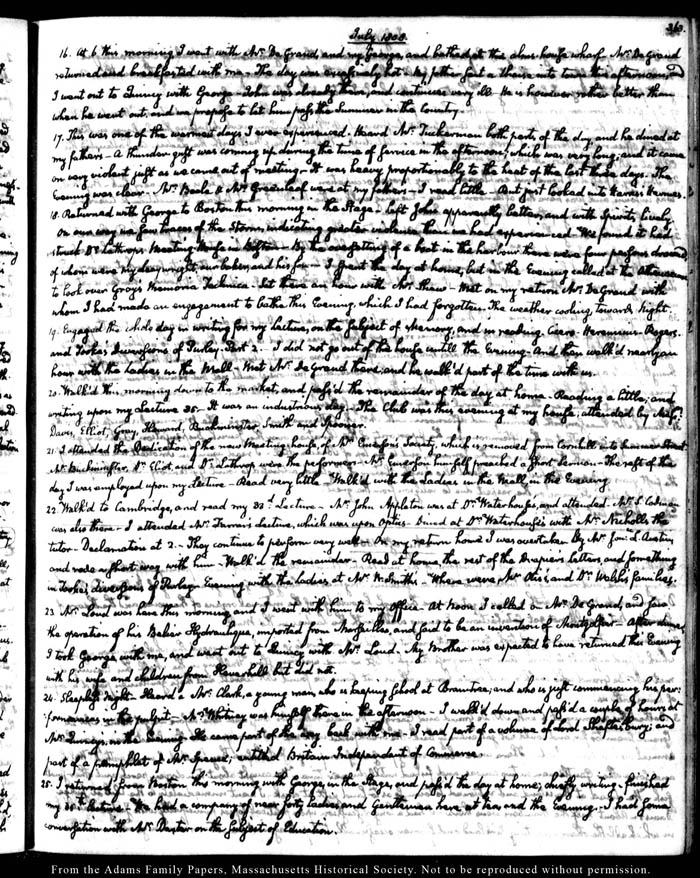 July 1808.
363.
16. At 6 this morning I went with Mr. De Grand, and my George, and bathed at the alms-house wharf. Mr. De Grand
returned and breakfasted with me. The day was excessively hot. My father sent a chaise into town this afternoon, and
I went out to Quincy with George. John was already there, and continues very ill. He is however rather better than
when he went out, and we propose to let him pass the summer in the Country.
17. This was one of the warmest days I ever experienced. Heard Mr. Tuckerman both parts of the day, and he dined at
my fathers. A thunder gust was coming up during the time of service in the afternoon, which was very long, and it came
on very violent just as we came out of meeting. It was heavy proportionably to the heat of the last three days. The
Evening was clear. Mr. Beale & Mr. Greenleaf were at my fathers. I read little. But just looked into Harris's Hermes.
18. Returned with George to Boston this morning in the Stage. left John apparently better, and with Spirits lively.
On our way we saw traces of the Storm, indicating greater violence than we had experienced. We found it had
struck Dr. Lathrop's Meeting House in Boston. By the oversetting of a boat in the harbour there were four persons drown'd
of whom were my draywright, and his son. I spent the day at home, but in the Evening called at the Athenaeum
to look over Grey's Memoria Technica. Sat there an hour with Mr. Shaw. Met on my return Mr. De Grand with
whom I had made an engagement to bathe this Evening, which I had forgotten. The weather cooling toward Night.
19. Engaged the whole day in writing for my lecture, on the subject of Memory, and in reading Cicero. Herennium. Rogers.
and Tooke's Diversions of Purley. Part 2. I did not go out of the house untill the Evening. And then walk'd nearly an
hour with the Ladies in the Mall. Met Mr. De Grand there, and he walk'd part of the time with us.
20. Walk'd this morning down to the market, and pass'd the remainder of the day at home. Reading a little, and
writing upon my Lecture 35. It was an industrious day. The Club was this evening at my house, attended by Mess:rs
Davis, Elliot, Gray, Howard, Buckminster, Smith and Spooner.
21. I attended the Dedication of the new Meeting-house, of Mr. Emerson's Society, which is removed from Cornhill into Summer Street
Mr. Buckminster, Dr. Eliot and Dr. Lathrop were the performers. Mr. Emerson himself preached a short Sermon. The rest of the
day I was employed upon my lecture. Read very little. Walk'd with the Ladies in the Mall, in the Evening.
22. Walk'd to Cambridge, and read my 33d. Lecture. Mr. John Appleton was at Dr. Waterhouse's, and attended. Mr. S. Codman
was also there. I attended Mr. Farrar's Lecture, which was upon Optics. Dined at Dr. Waterhouse's with Mr. Nicholls the
tutor. Declamation at 2. They continue to perform very well. On my return home I was overtaken by Mr. Jon: L. Austin,
and rode a short way with him. Walk'd the remainder. Read at home, the rest of the Drapier's letters, and something
in Tooke's diversions of Purley. Evening with the Ladies at Mr. W. Smith's. Where were, Mr. Otis's, and Dr. Welsh's families.
23. Mr. Loud was here this morning and I went with him to my Office. At Noon I called on Mr. De Grand, and saw
the operation of his Belier Hydraulique, imported from Marseilles, and said to be an invention of Montgolfier. After dinner
I took George with me, and went out to Quincy with Mr. Loud. My Brother was expected to have returned this Evening
with his wife and children from Haverhill but did not.
24. Sleepless night. Heard a Mr. Clark, a young man, who is keeping School at Braintree, and who is just commencing his per-
formances in the pulpit. Mr. Whitney was himself there in the afternoon. I walk'd down and pass'd a couple of hours at
Mr. Quincy's, in the Evening. He came part of the way back with me. I read part of a volume of Lord Shaftesbury; and
part of a pamphlet of Mr. Spence, entitled Britain Independent of Commerce.
25. I returned from Boston this morning with George, in the Stage, and pass'd the day at home; chiefly writing. finished
my 35th. lecture. We had a company of near forty Ladies and Gentlemen here at tea, and the Evening. I had some
conversation with Mr. Dexter on the subject of Education.
From the Adams Family Papers, Massachusetts Historical Society. Not to be reproduced without permission.